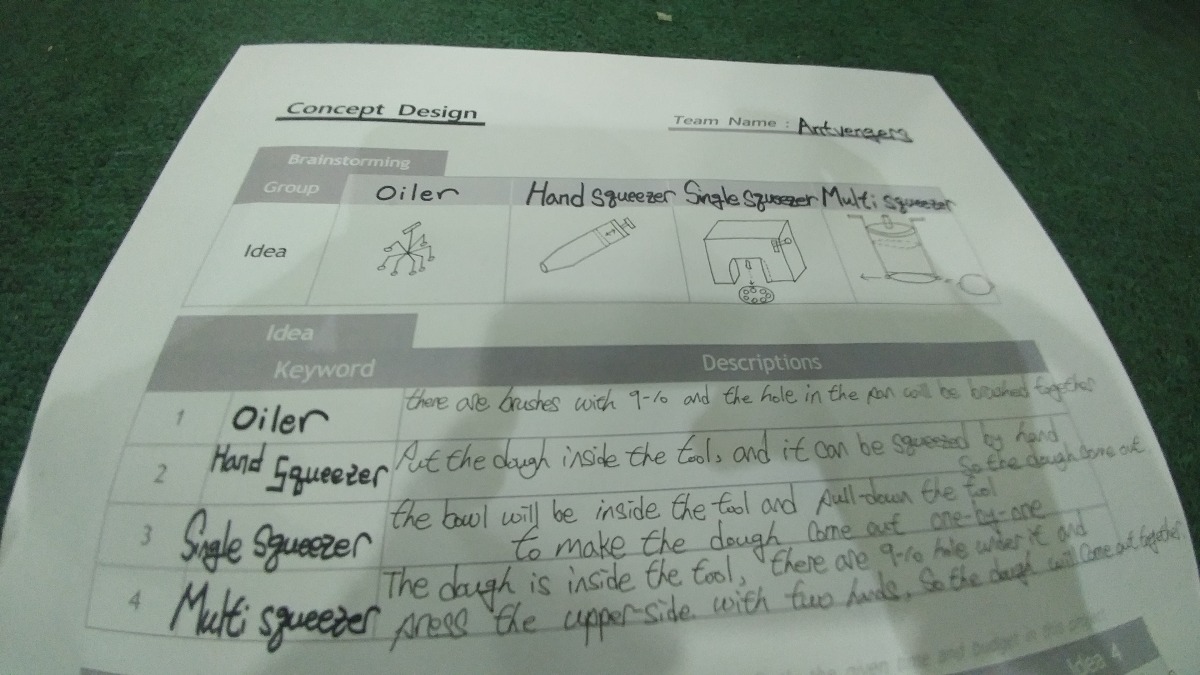 Concept Design
Team Name : Antvengers
Brainstorming
Group Oiler Hand squeezer Single squeezer Multi squeezer
Idea
Idea
Keyword Descriptions
1 Oiler there are brushes with 9-10 and the hole in the pan will be brushed together
2 Hand Squeezer Put the dough inside the tool, and it can be squeezed by hand
So the dough come out
3 Single Squeezer the bowl will be inside the tool and pull-down the tool
to make the dough come out one-by-one
4 Multi squeezer The dough is inside the tool, there are 9-10 hole under it and
press the upper-side with two hands, So the dough will come out together.
the given time and budget in this
Idea 4